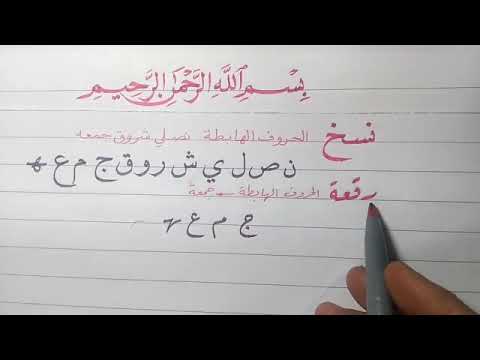 بِسْمِ ٱللَّهِ الرَّحْمَٰنِ الرَّحِيمِ
نسخ الحروف الهابطة نصلي شروق جمعه
ن ص ل ي ش ر و ق ج م ع ه
رقعة الحروف الهابطة جمعة
ج م ع ه